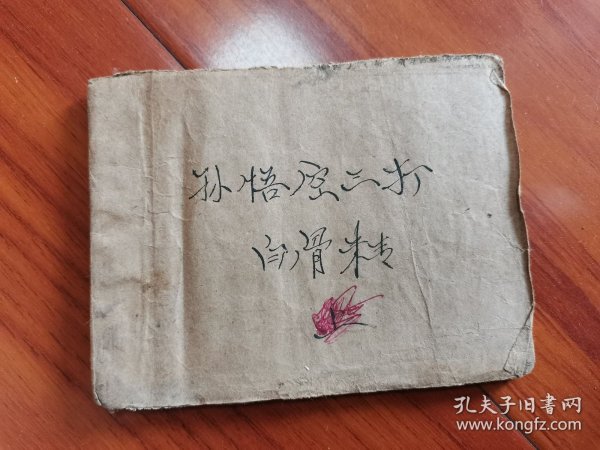 孙悟空三打
白骨精
孔夫子旧書网
www.kongfz.com